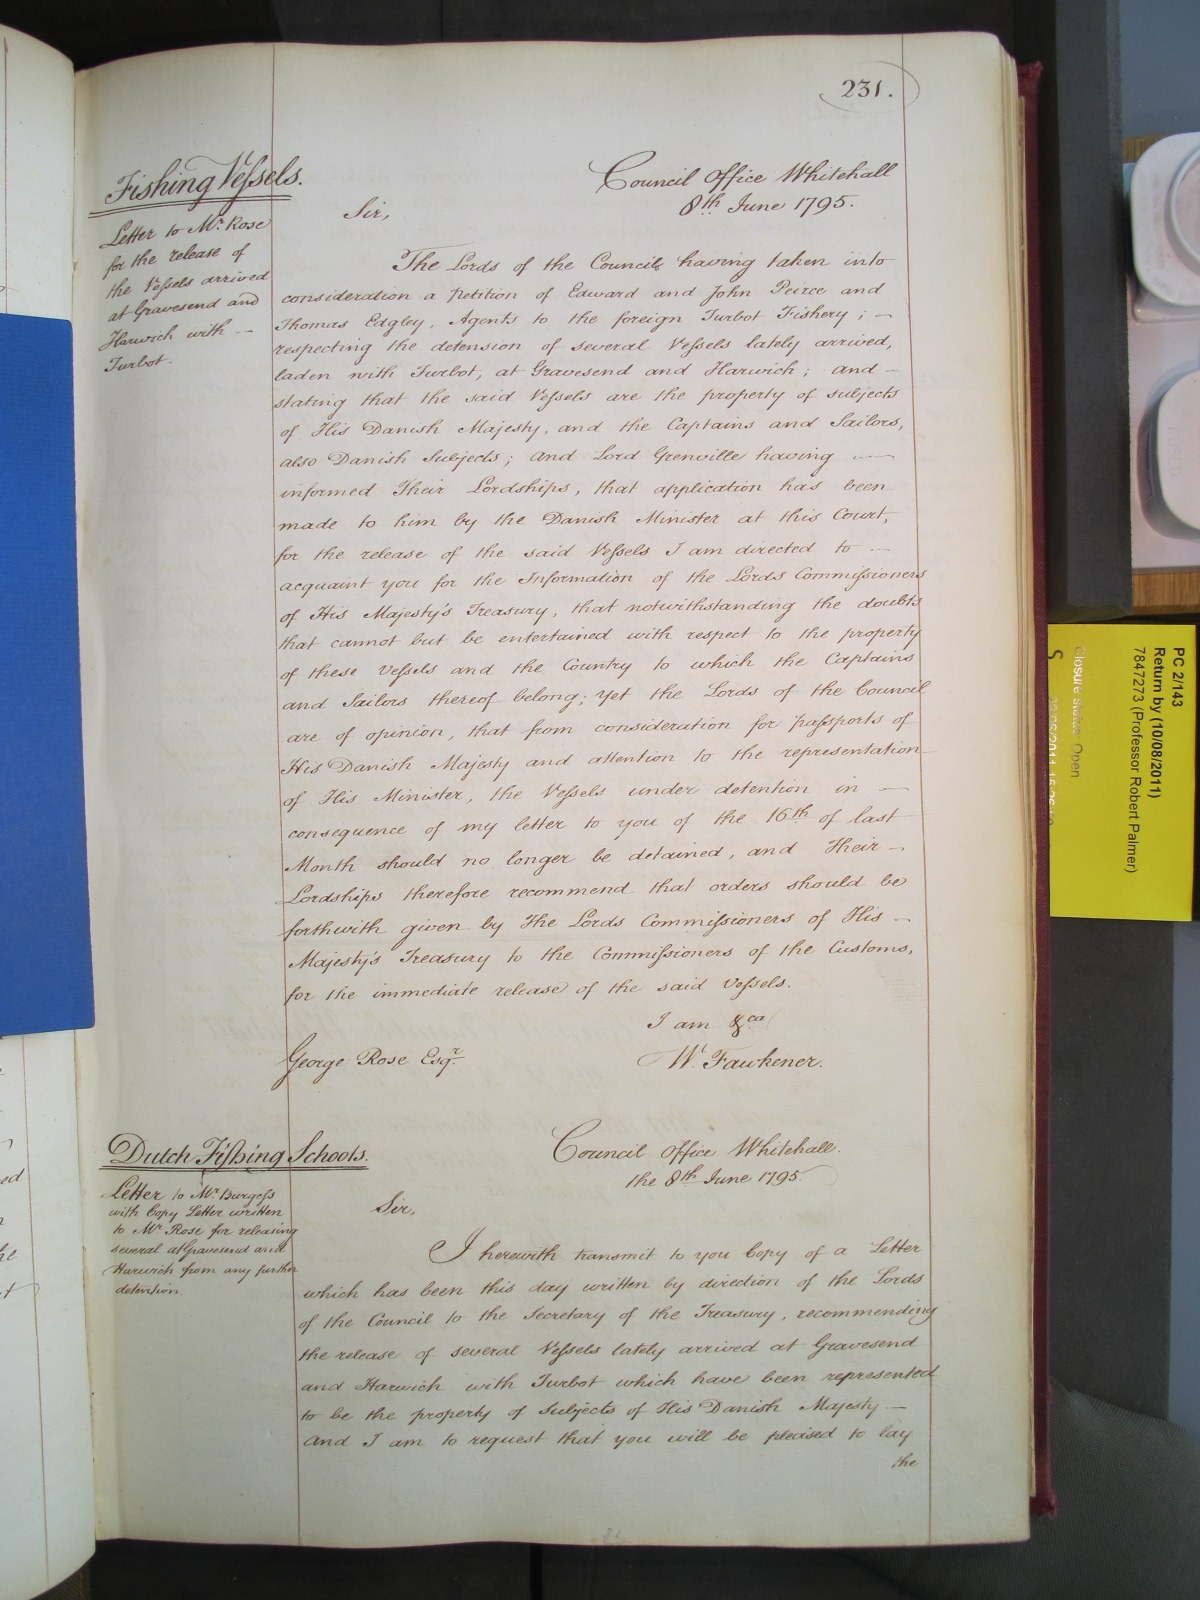 231.
Fishing Vessels.
Letter to Mr. Rose
for the release of
the Vessels arrived
at Gravesend and
Harwich with —
Turbot.
Council Office Whitehall
8th. June 1795.
Sir,
The Lords of the Council, having taken into
consideration a petition of Edward and John Peirce and
Thomas Edgley, Agents to the foreign Turbot Fishery; —
respecting the detension of several Vessels lately arrived,
laden with Turbot, at Gravesend and Harwich; and —
stating that the said Vessels are the property of subjects
of His Danish Majesty, and the Captains and Sailors,
also Danish Subjects; and Lord Grenville having —
informed Their Lordships, that application has been
made to him by the Danish Minister at this Court,
for the release of the said Vessels I am directed to —
acquaint you for the Information of the Lords Commissioners
of His Majesty's Treasury, that notwithstanding the doubts
that cannot but be entertained with respect to the property
of these Vessels and the Country to which the Captains
and Sailors thereof belong; yet the Lords of the Council
are of opinion, that from consideration for passports of
His Danish Majesty and attention to the representation
of His Minister, the Vessels under detention in —
consequence of my letter to you of the 16th of last
Month should no longer be detained, and Their —
Lordships therefore recommend that orders should be
forthwith given by The Lords Commissioners of His —
Majesty's Treasury to the Commissioners of the Customs,
for the immediate release of the said Vessels.
I am &ca
George Rose Esqr.
W. Fawkener.
Dutch Fishing Schoots.
Letter to Mr. Burgess
with Copy Letter written
to Mr. Rose for releasing
several at Gravesend and
Harwich from any further
detention.
Council Office Whitehall.
the 8th June 1795.
Sir,
I herewith transmit to you Copy of a Letter
which has been this day written by direction of the Lords
of the Council to the Secretary of the Treasury, recommending
the release of several Vessels lately arrived at Gravesend
and Harwich with Turbot which have been represented
to be the property of Subjects of His Danish Majesty —
And I am to request that you will be pleased to lay
the
PC 2/143
Return by (10/08/2011)
7847273 (Professor Robert Palmer)
Closure status: Open
S